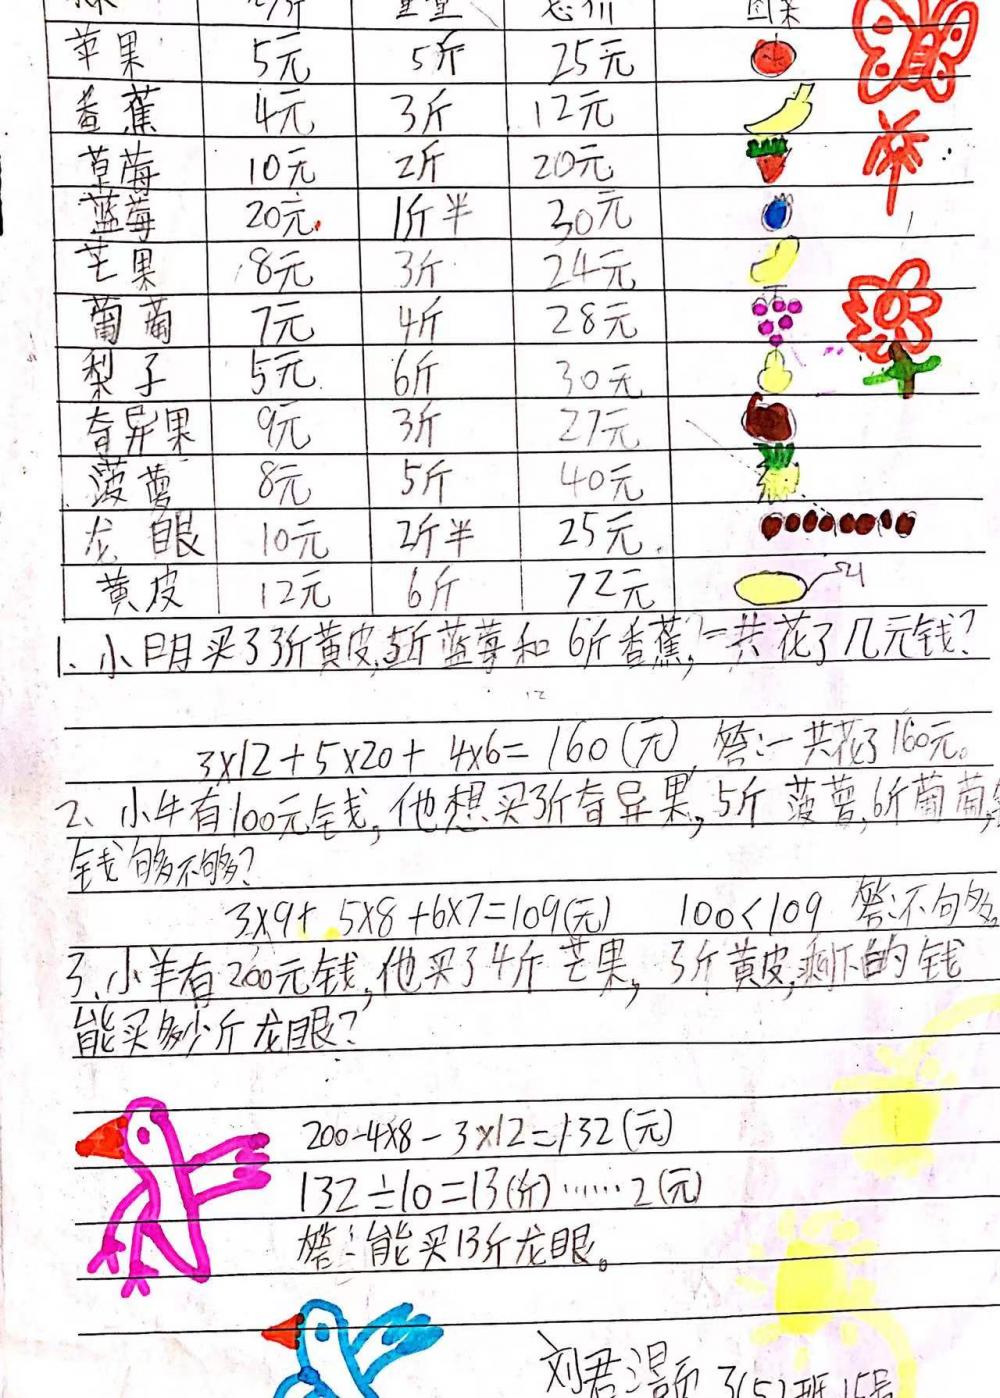 苹果 5元 5斤 25元
香蕉 4元 3斤 12元
草莓 10元 2斤 20元
蓝莓 20元 1斤半 30元
芒果 8元 3斤 24元
葡萄 7元 4斤 28元
梨子 5元 6斤 30元
奇异果 9元 3斤 27元
菠萝 8元 5斤 40元
龙眼 10元 2斤半 25元
黄皮 12元 6斤 72元
1、小明买了3斤黄皮,5斤蓝莓和6斤香蕉,一共花了几元钱?
3×12+5×20+4×6=160(元) 答:一共花了160元。
2、小牛有100元钱,他想买3斤奇异果,5斤菠萝,6斤葡萄,
钱够不够?
3×9+5×8+6×7=109(元) 100<109 答:不够
3、小羊有200元钱,他买了4斤芒果,3斤黄皮,剩下的钱
能买多少斤龙眼?
200-4×8-3×12=132(元)
132÷10=13(斤)……2(元)
答:能买13斤龙眼。
刘君 3(5)班15号